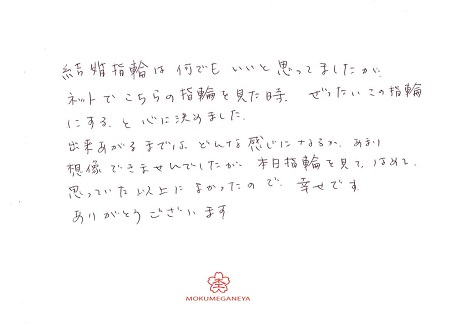 結婚指輪は何でもいいと思ってましたが、
ネットでこちらの指輪を見た時、ぜったいこの指輪
にする、と心に決めました。
出来あがるまでは、どんな感じになるか、あまり
想像できませんでしたが、本日指輪を見て、はめて、
思っていた以上によかったので、幸せです。
ありがとうございます
MOKUMEGANEYA